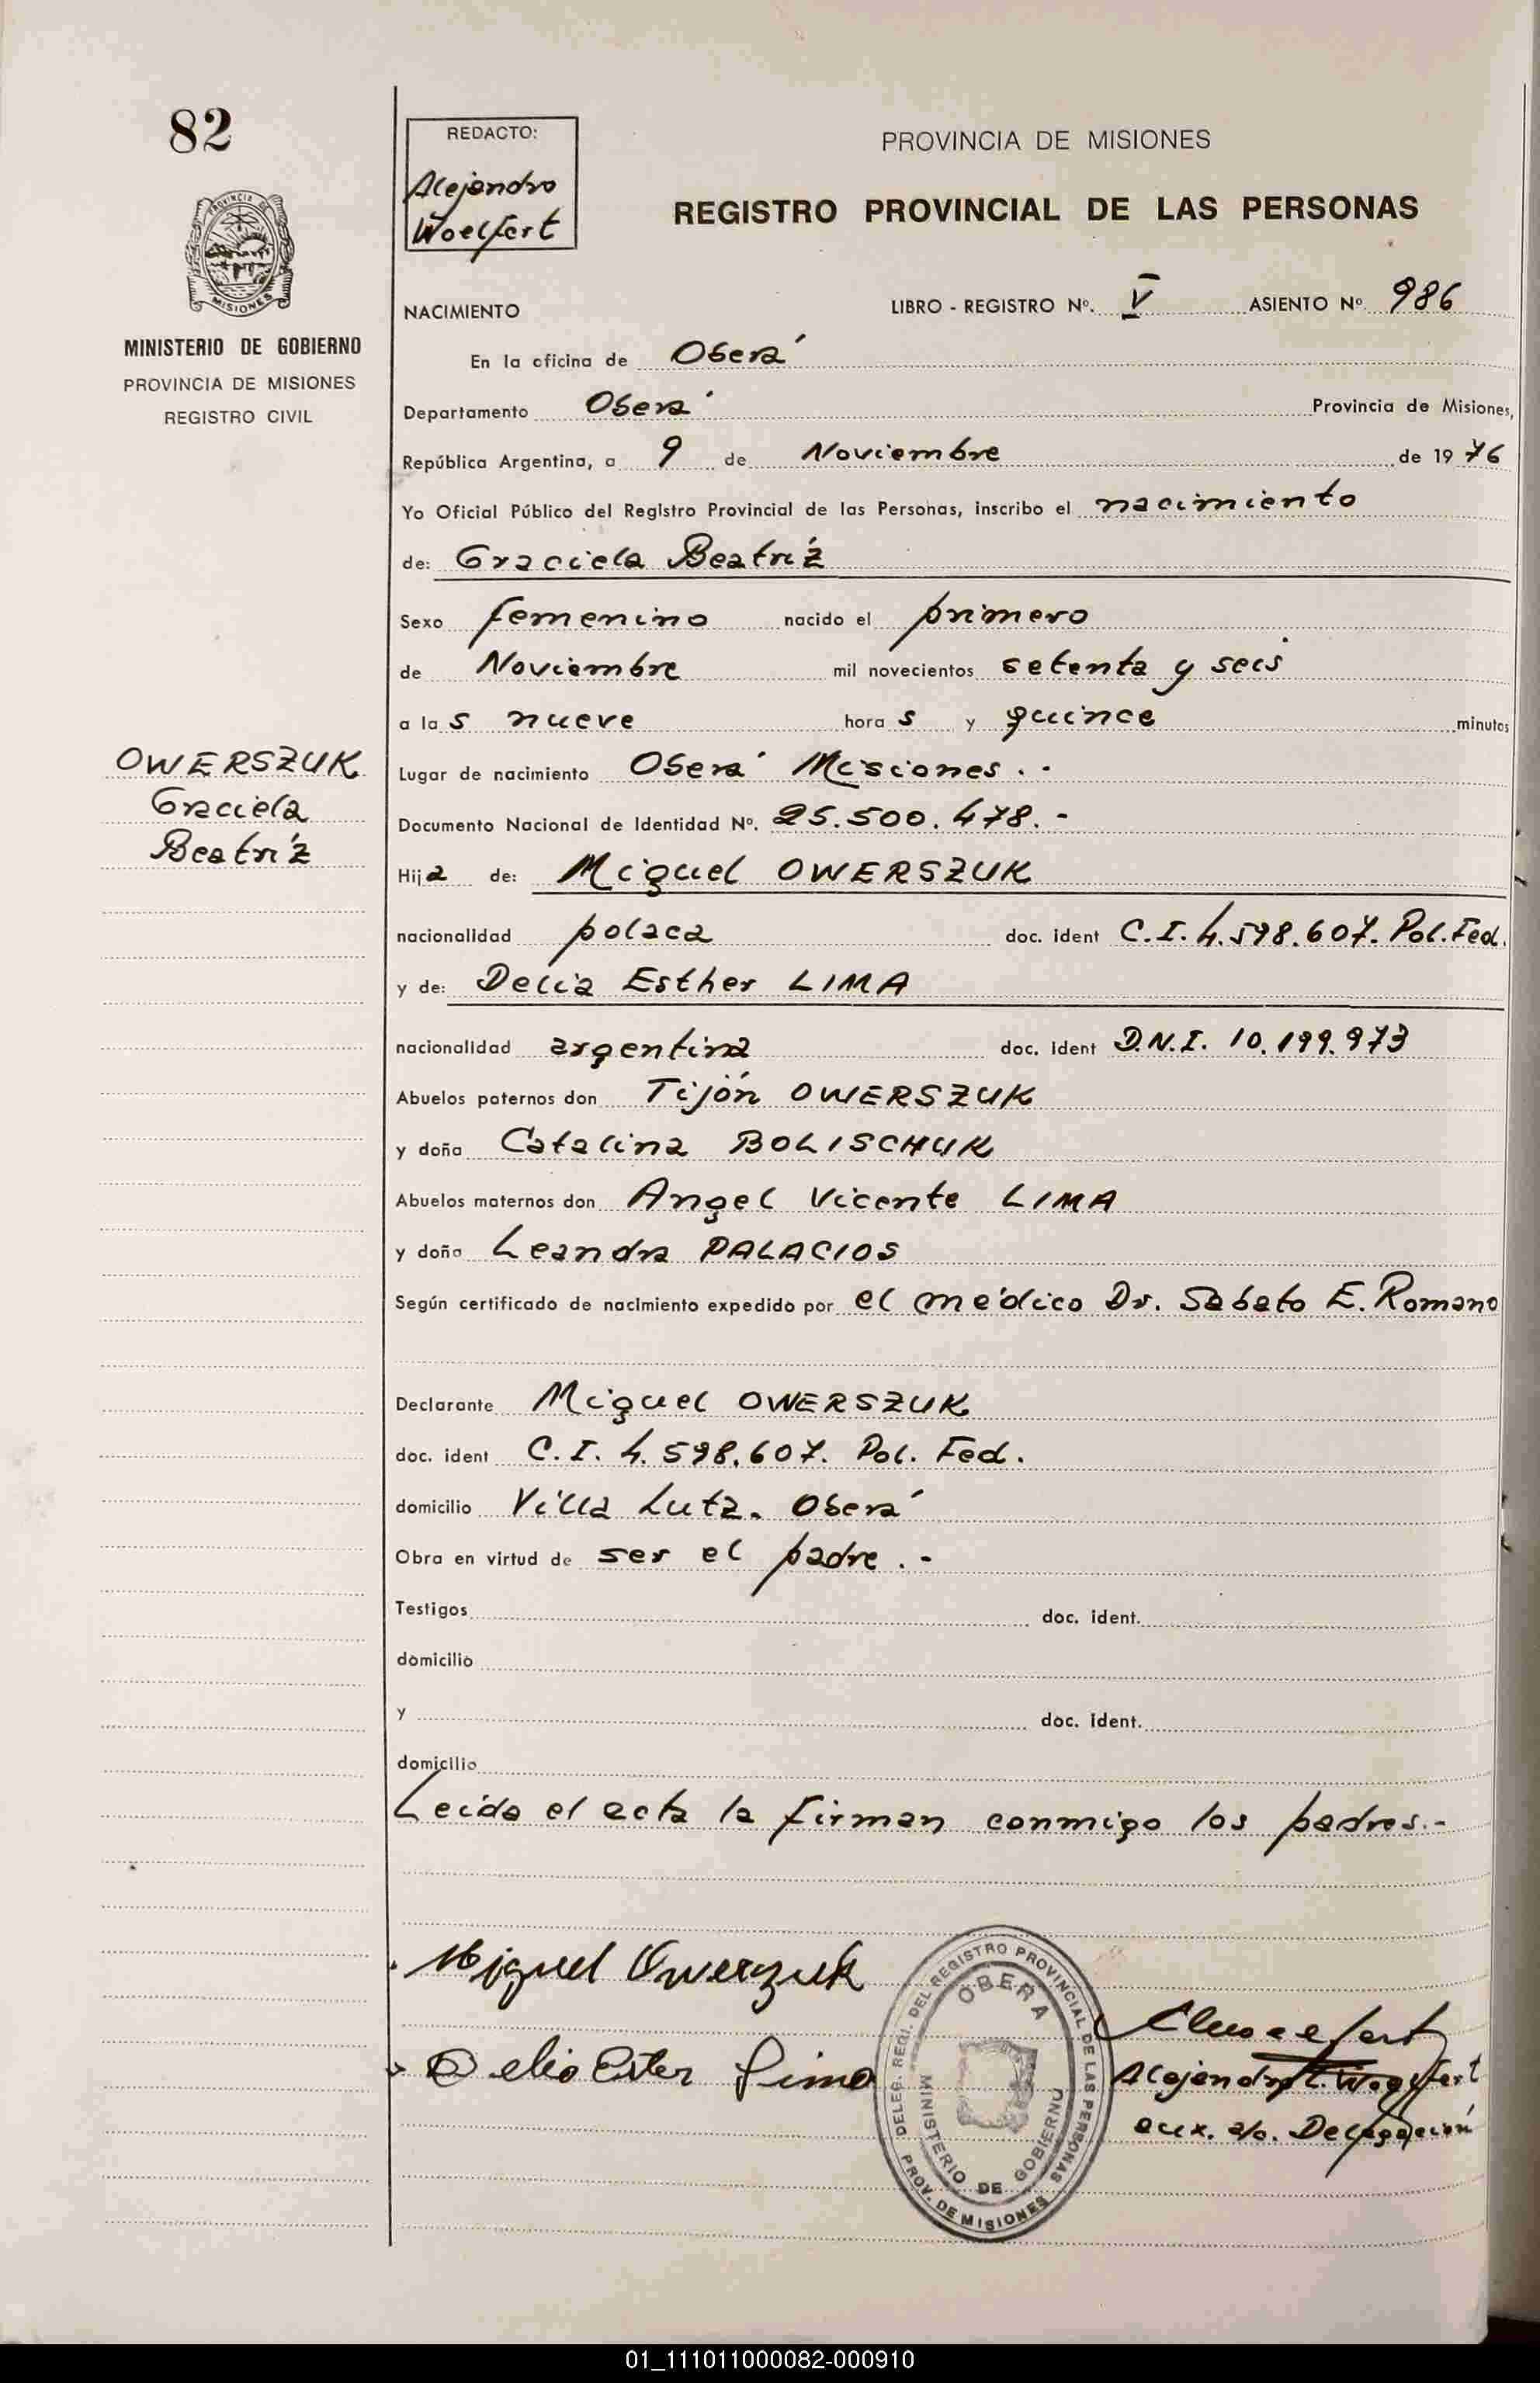 82
PROVINCIA DE MISIONES
MINISTERIO DE GOBIERNO
PROVINCIA DE MISIONES
REGISTRO CIVIL
OWERSZUK
Graciela
Beatríz
REDACTO:
Alejandro
Woelfert
PROVINCIA DE MISIONES
REGISTRO PROVINCIAL DE LAS PERSONAS
NACIMIENTO LIBRO - REGISTRO Nº. V ASIENTO Nº 986
En la oficina de Oberá
Departamento Oberá Provincia de Misiones,
República Argentina, a 9 de Noviembre de 1976
Yo Oficial Público del Registro Provincial de las Personas, inscribo el nacimiento
de: Graciela Beatríz
Sexo femenino nacido el primero
de Noviembre mil novecientos setenta y seis
a las nueve horas y quince minutos
Lugar de nacimiento Oberá Misiones . -
Documento Nacional de Identidad Nº. 25.500.478. -
Hija de: Miguel OWERSZUK
nacionalidad polaca doc. ident C.I. 4.598.607. Pol. Fed.
y de: Delia Esther LIMA
nacionalidad argentina doc. ident D.N.I. 10.199.973
Abuelos paternos don Tijón OWERSZUK
y doña Catalina BOLISCHUK
Abuelos maternos don Angel Vicente LIMA
y doña Leandra PALACIOS
Según certificado de nacimiento expedido por el médico Dr. Sabato E. Romano
Declarante Miguel OWERSZUK
doc. ident C.I. 4.598.607. Pol. Fed.
domicilio Villa Lutz. Oberá
Obra en virtud de ser el padre . -
Testigos doc. ident.
domicilio
y doc. ident.
domicilio
Leída el acta la firman conmigo los padres.-
Miguel Owerzuk
Delia Ester Lima
DELEG. REGI. DEL REGISTRO PROVINCIAL DE LAS PERSONAS
OBERA
MINISTERIO DE GOBIERNO
PROV. DE MISIONES
Alejandro Woelfert
aux. a/c. Delegación
01_111011000082-000910